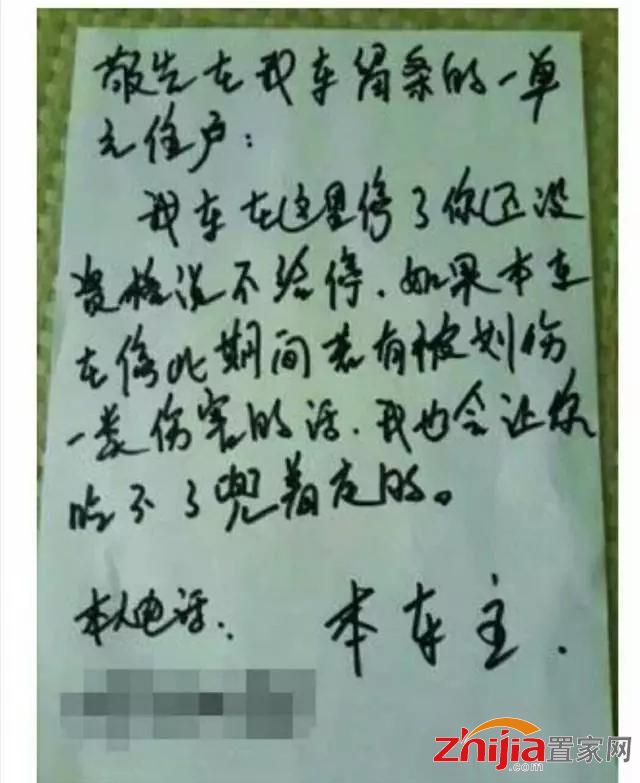 敬告在我车留条的一单
元住户:
我车在这里停了你还没
资格说不给停.如果本车
在停此期间若有被划伤
一类伤害的话.我也会让你
吃不了兜着走的。
本人电话.
本车主.
zhijia置家网